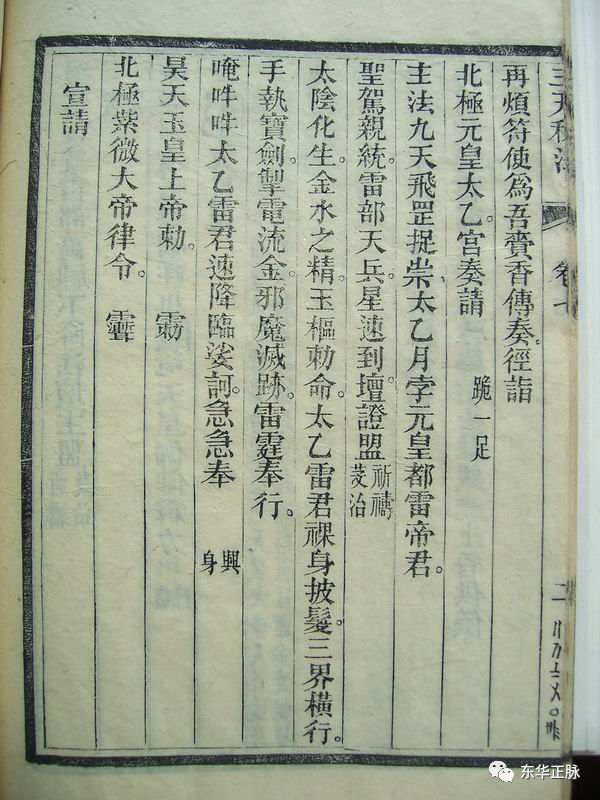 再煩符使為吾賫香傳奏。徑詣
北極元皇太乙宮奏請 跪一足
主法九天飛罡捉祟太乙月孛元皇都雷帝君。
聖駕親統雷部天兵星速到壇證盟 祈禱 芟治
太陰化生。金水之精。玉樞勅命。太乙雷君。祼身披髮。三界橫行。
手執寶劍。掣電流金。邪魔滅跡。雷霆奉行。
唵吽吽太乙雷君速降臨娑訶。急急奉 興身
昊天玉皇上帝勅。
北極紫微大帝律令。
宣請
卷七
二
东华正脉